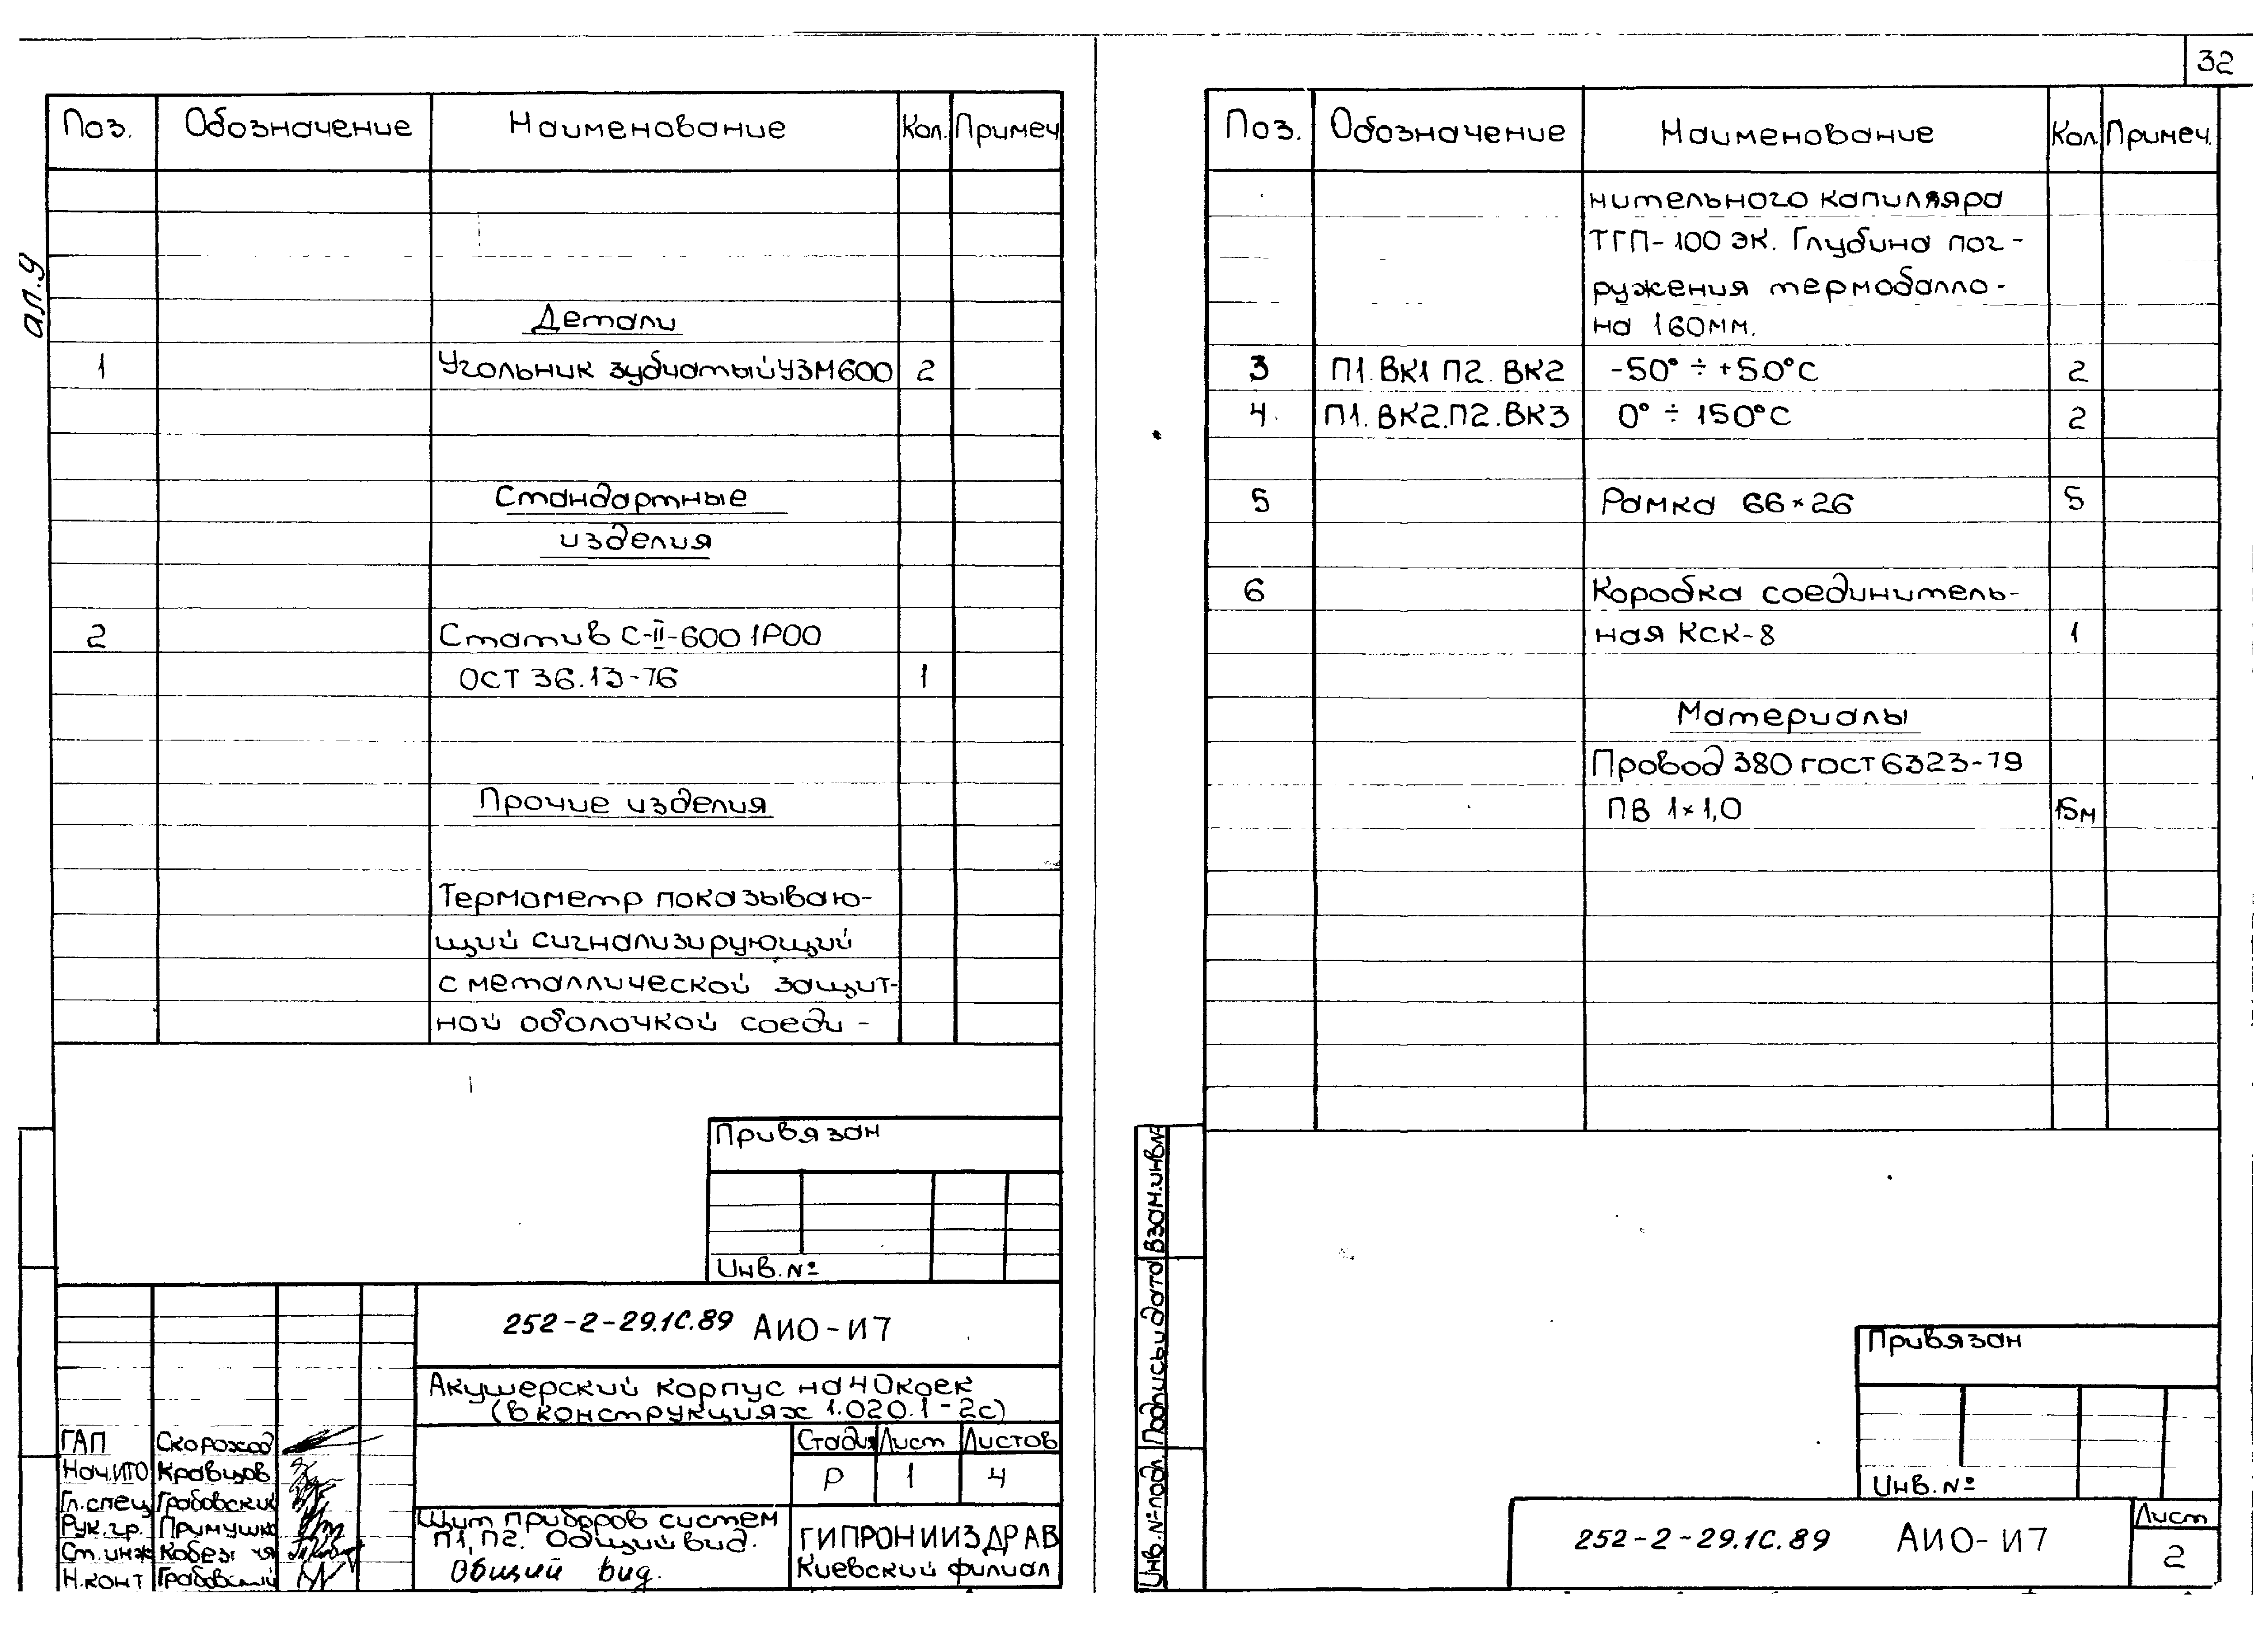 32
ал.9
Поз. Обозначение Наименование Кол. Примеч
Детали
1 Угольник зубчатый УЗМ600 2
Стандартные
изделия
2 Статив С-II-600 IP00
ОСТ 36.13-76 1
Прочие изделия
Термометр показываю-
щий сигнализирующий
с металлической защит-
ной оболочкой соеди-
Привязан
Инв.№
252-2-29.1С.89 АИО-И7
Акушерский корпус на 40 коек
(в конструкциях 1.020.1-2с)
ГАП Скороход
Нач.ИТО Кравцов
Гл.спец Грабовский
Рук.гр. Примушко
Ст.инж
Н.конт Грабовский
Стадия Лист Листов
Р 1 4
Щит приборов систем
П1, П2. Общий вид.
Общий вид.
ГИПРОНИИЗДРАВ
Киевский филиал
Поз. Обозначение Наименование Кол Примеч.
нительного капилляра
ТГП-100 ЭК. Глубина пог-
ружения термобалло-
на 160мм.
3 П1.ВК1 П2.ВК2 -50° ÷ +50°С 2
4. П1.ВК2.П2.ВК3 0° ÷ 150°С 2
5 Рамка 66×26 5
6 Коробка соединитель-
ная КСК-8 1
Материалы
Провод 380 ГОСТ 6323-79
ПВ 1×1,0 15м
Взам.инв№
Подпись и дата
Инв.№подл.
Привязан
Инв.№
252-2-29.1С.89 АИО-И7
Лист
2